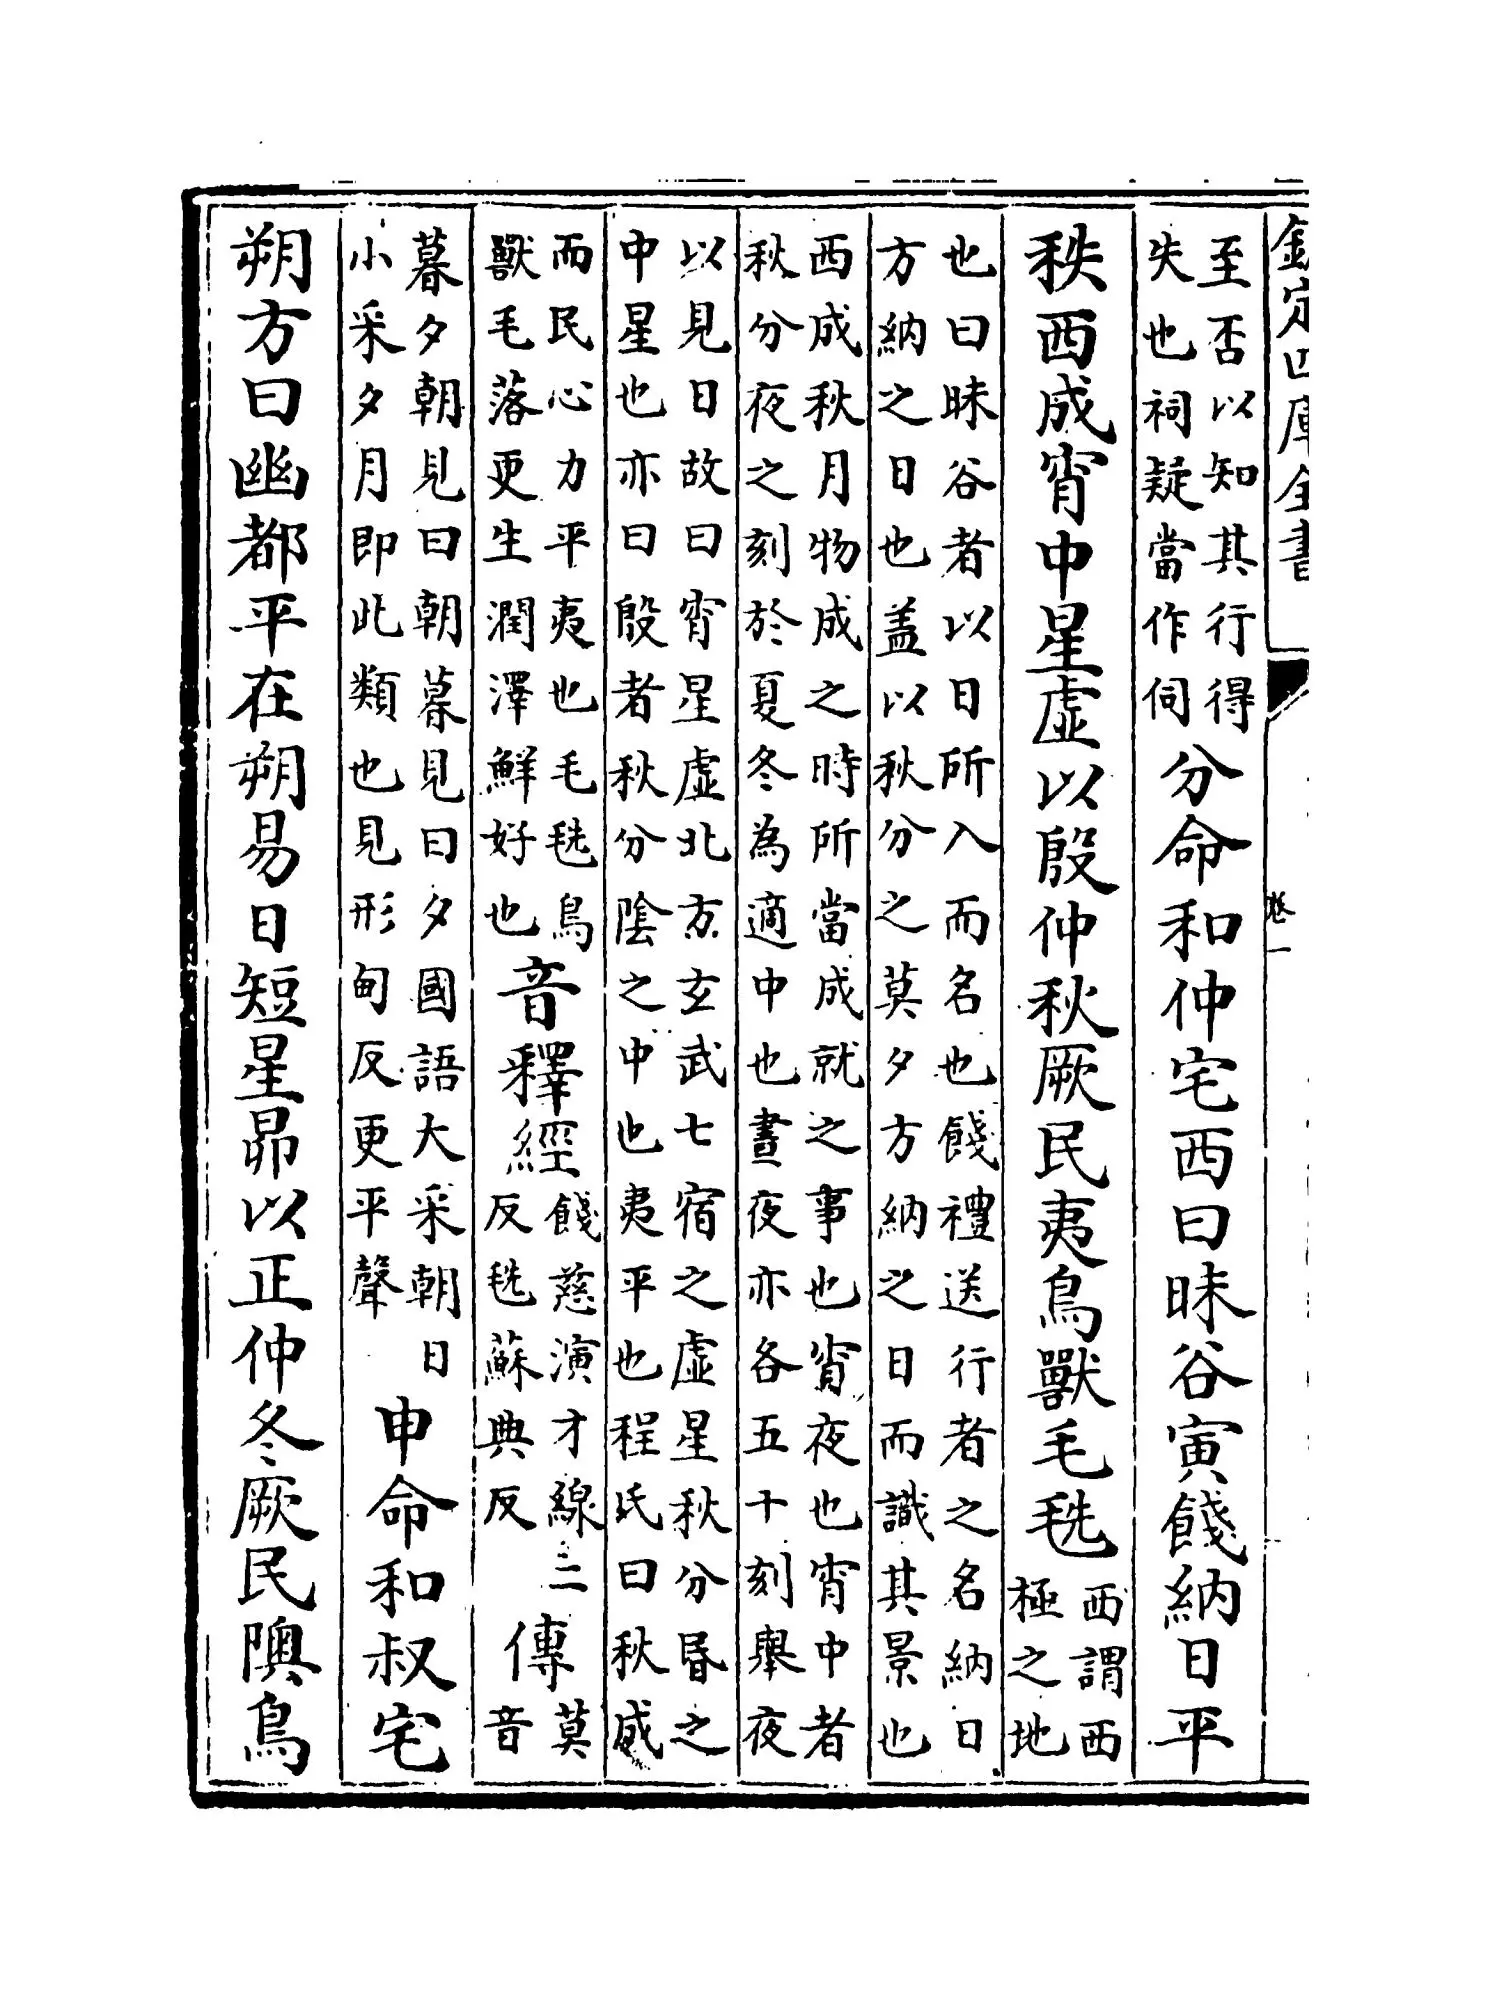 欽定四庫全書
卷一
至否以知其行得
失也祠疑當作伺
分命和仲宅西曰昧谷寅餞納日平
秩西成宵中星虛以殷仲秋厥民夷鳥獸毛毨
西謂西
極之地
也曰昧谷者以日所入而名也餞禮送行者之名納日
方納之日也盖以秋分之莫夕方納之日而識其景也
西成秋月物成之時所當成就之事也宵夜也宵中者
秋分夜之刻於夏冬為適中也晝夜亦各五十刻舉夜
以見日故曰宵星虛北方玄武七宿之虛星秋分昏之
中星也亦曰殷者秋分陰之中也夷平也程氏曰秋成
而民心力平夷也毛毨鳥
獸毛落更生潤澤鮮好也
音釋經
餞慈演才線二
反毨蘇典反
傳
莫音
暮夕朝見曰朝暮見曰夕國語大采朝日
小采夕月即此類也見形甸反更平聲
申命和叔宅
朔方曰幽都平在朔易日短星昴以正仲冬厥民隩鳥